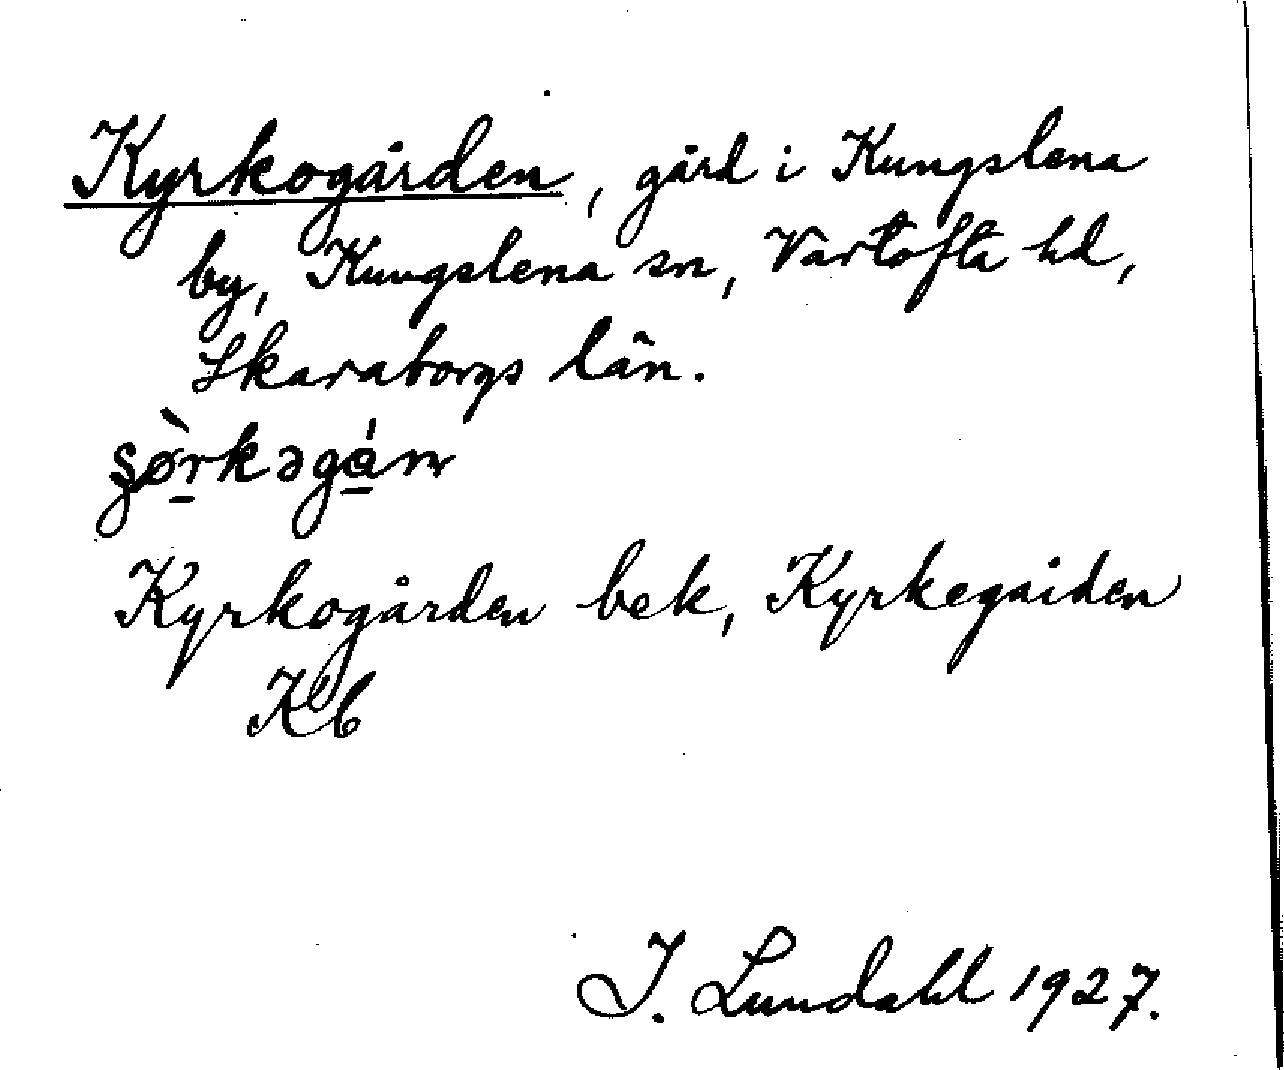 Kyrkogården, gård i Kungslena
by, Kungslena sn, Vartofta hd,
Skaraborgs län.
Kyrkogården bek, Kyrkegården
Kb
I. Lundahl 1927.